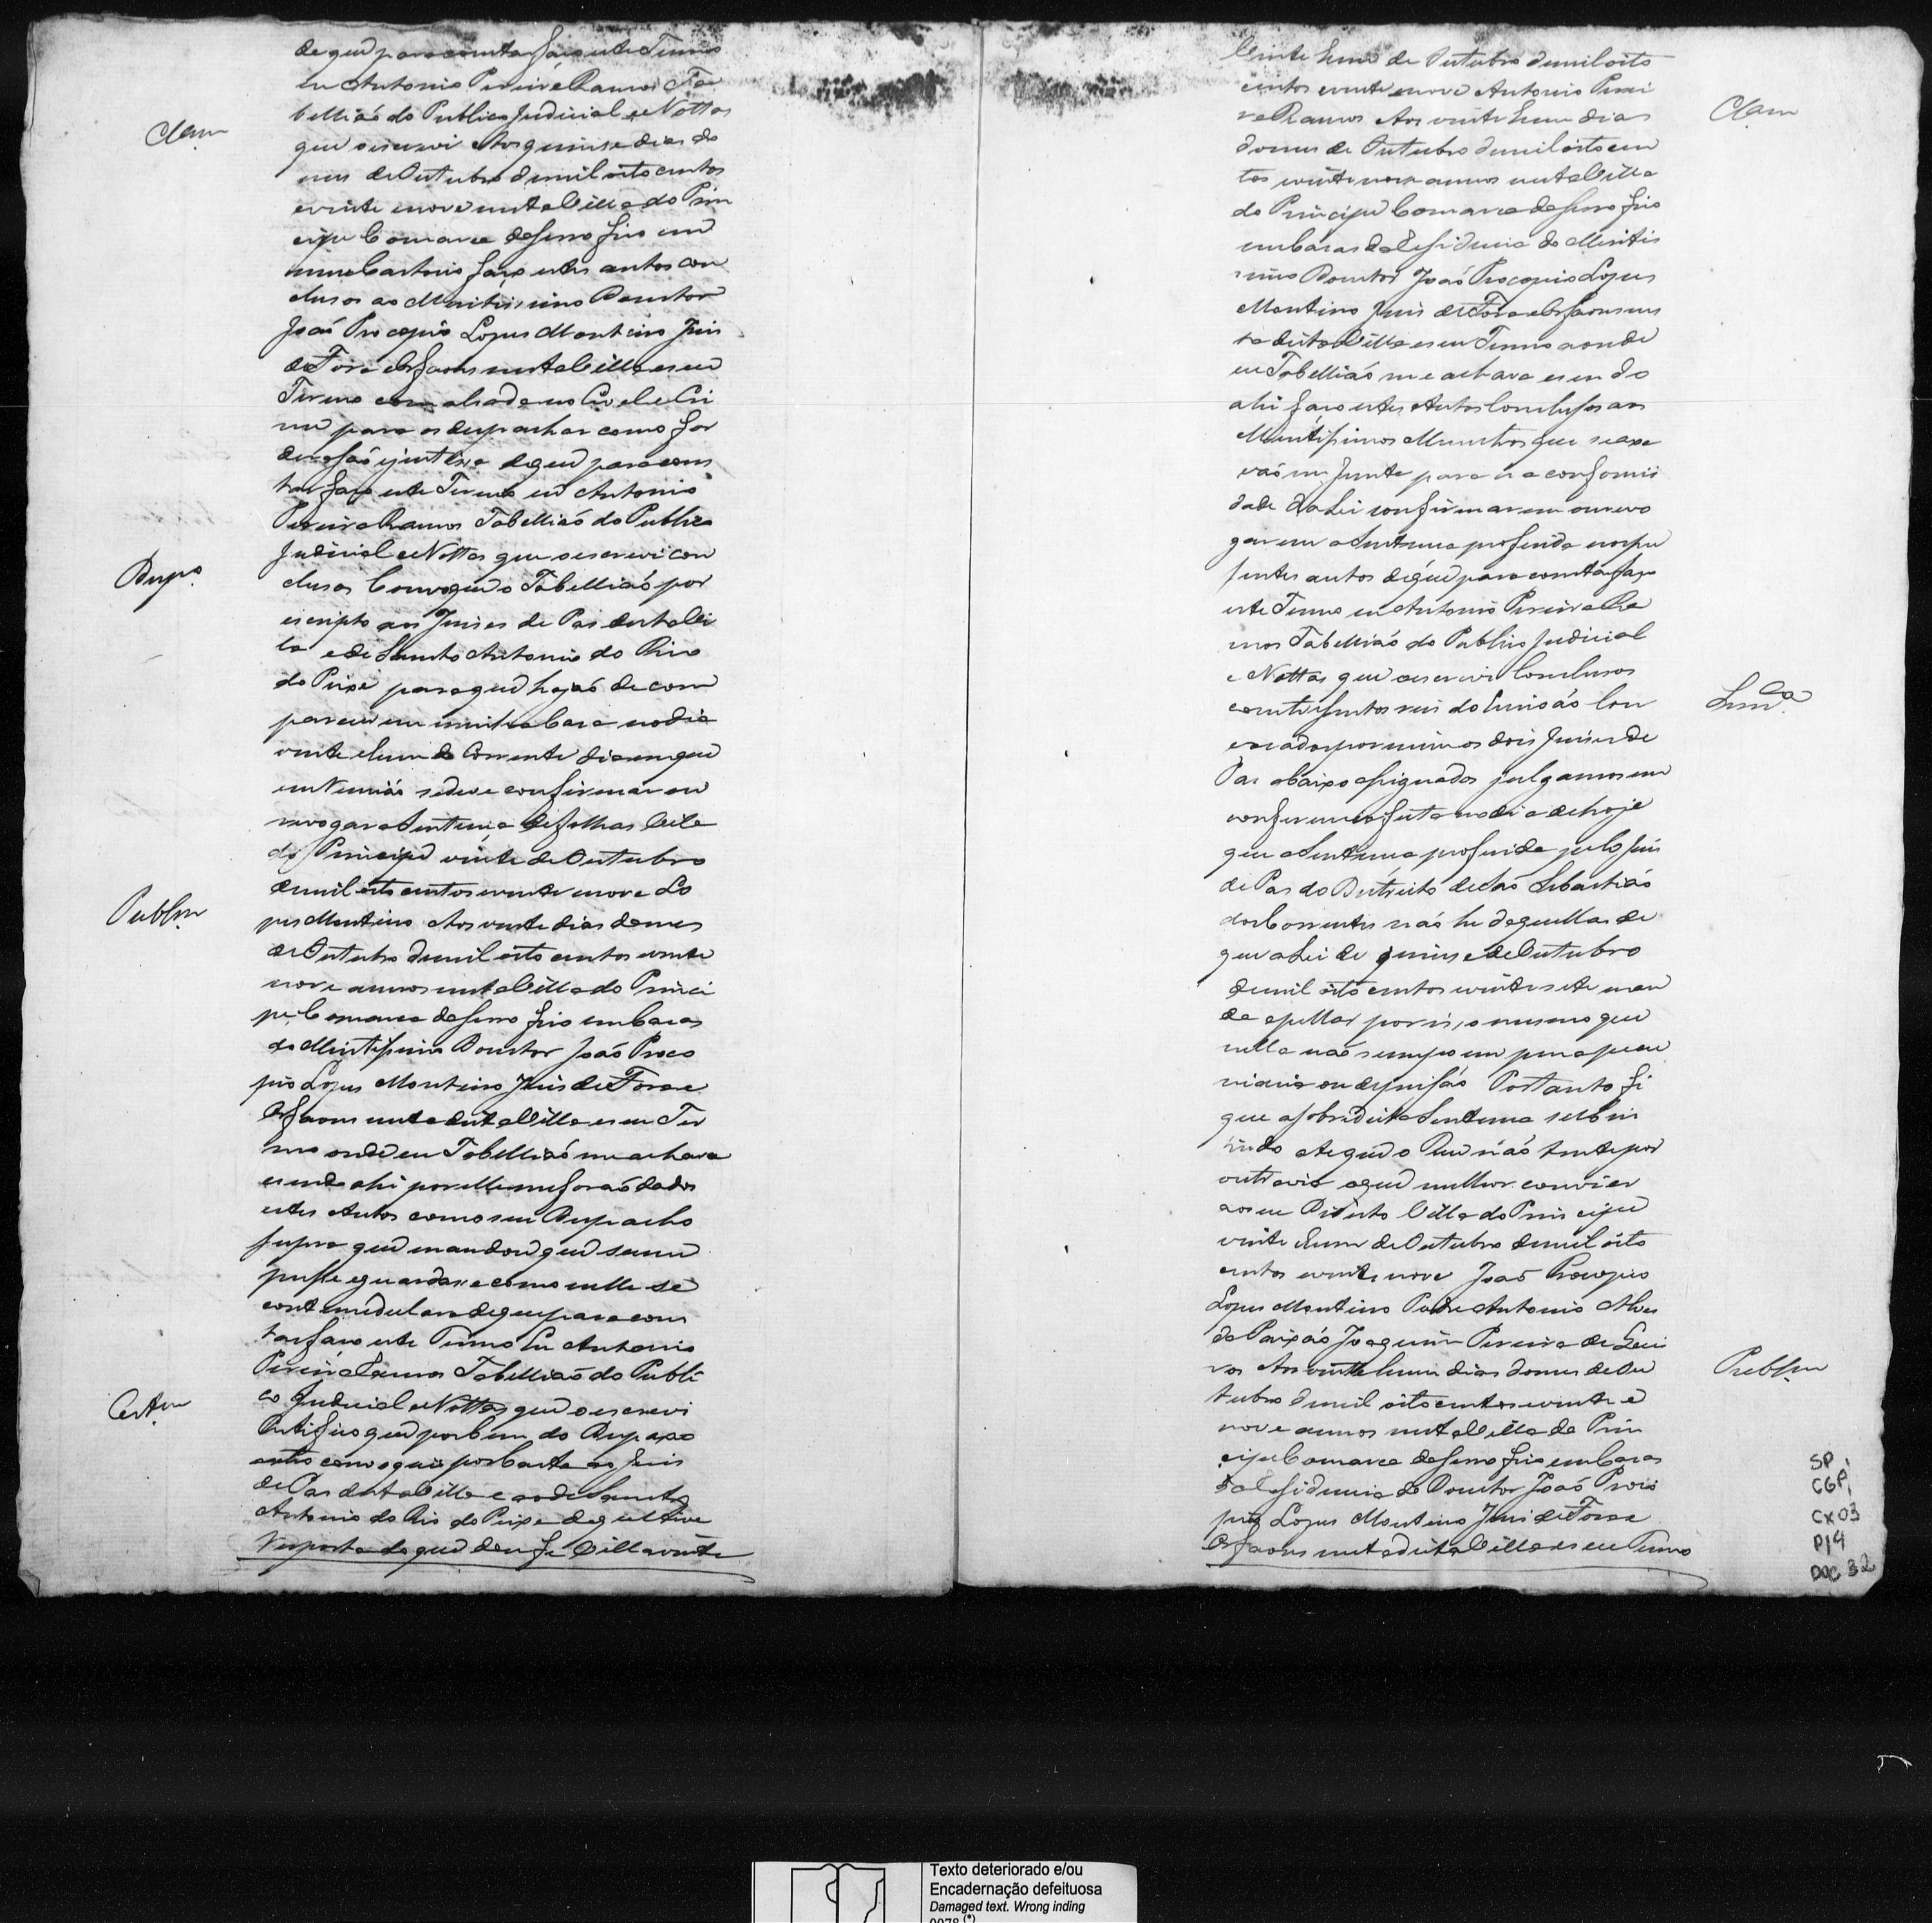 de que para constar faço este Termo
eu Antonio Pereira Ramos Ta
belliaõ do Publico Judicial e Nottas
Clzm
que o escrevi Aos quinse dias do
mes de Outubro de mil oito centos
e vinte e nove nesta Villa do Prin
cipe Comarca do Serro frio em
meu Cartorio faço estes autos con
clusos ao Meritissimo Douctor
Joaõ Procopio Lopes Monteiro Juis
de Fora e Orfaons nesta Villa e seu
Termo com alsada no Civel e Cri
me para os despachar como for
de rasaõ e justiça de que para cons
tar faço este Termo eu Antonio
Pereira Ramos Tabelliaõ do Publico
Judicial e Nottas que o escrevi con
Desp.o
clusos Convoque o Tabelliaõ por
escripto aos Juises de Pas desta Vi
la e de Santo Antonio do Rio
do Peixe para que hajaõ de com
parecer em minha Casa no dia
vinte e hum do Corrente dia em que
em Reuniaõ se deve confirmar ou
revogar a Sentença de folhas Villa
do Principe vinte de Outubro
de mil oito centos e vinte e nove Lo
Publm
pes Monteiro Aos vinte dias do mes
de Outubro de mil oito centos e vinte
nove annos nesta Villa do Princi
pe Comarca do Serro frio em Casas
do Meritissimo Douctor Joaõ Proco
pio Lopes Monteiro Juis de Fora e
Orfaons nesta dita Villa e seu Ter
mo onde eu Tabelliaõ me achava
e sendo ahi por elle me foraõ dados
estes Autos com o seu Despacho
supra que mandou que se cum
prisse e guardase como nelle se
contem e declara de que para cons
tar faço este Termo Eu Antonio
Pereira Ramos Tabelliaõ do Publi
co Judicial e Nottas que o escrevi
Certm
Certifico que por bem do Despaxo
retro convoquei por Carta ao Juis
de Pas desta Villa e ao de Santo
Antonio do Rio do Peixe de que tive
Resposta do que dou fe Villa vinte
Vinte hum de Outubro de mil oito
centos e vinte e nove Antonio Perei
Clzm
ra Ramos Aos vinte hum dias
do mes de Outubro de mil oito cen
tos vinte nove annos nesta Villa
do Principe Comarca do Serro frio
em Casas da Residencia do Meritis
simo Douctor Joaõ Procopio Lopes
Monteiro Juis de Fora e Orfaons nes
ta dita Villa e seu Termo aonde
eu Tabelliaõ me achava e sendo
ahi faço estes Autos Conclusos aos
Meritissimos Menistros que se axa
vaõ em Junta para na conformi
dade da Lei confirmarem ou revo
garem a Sentença proferida nos pre
sentes autos de que para constar faço
este Termo eu Antonio Pereira Ra
mos Tabelliaõ do Publico Judicial
e Nottas que o escrevi Conclusos
Senn.ça
com trisentos reis do Concluzaõ Con
vocados por mim os dois Juises de
Pas abaixo assignados julgamos em
conferencia feita no dia de hoje
que a Sentença proferida pelo Juis
de Pas do Destricto de Saõ Sebastiaõ
dos Correntes naõ he daquellas de
que a Lei de quinse de Outubro
de mil oito centos e vinte sete man
da apellar por is, o mesmo que
nella naõ se impoem pena pecu
niaria ou de prisaõ Portanto fi
que a sobredita Sentença
ate que o Reu naõ tente por
outra via o que melhor convier
ao seu Direito Villa do Principe
vinte e hum de Outubro de mil oito
centos e vinte nove Joaõ Procopio
Lopes Monteiro Padre Antonio Alves
da Paixaõ Joaquim Pereira de Quei
Publm
ros Aos vinte hum dias do mes de Ou
tubro de mil oito centos e vinte e
nove annos nesta Villa do Prin
cipe Comarca do Serro frio em Casas
da Residencia do Douctor Joaõ Proco
pio Lopes Monteiro Juis de Fora e
Orfaons nesta dita Villa e seu Termo
SP
CGP1
CX 03
P19
DOC 32
Texto deteriorado e/ou
Encadernação defeituosa
Damaged text. Wrong inding
0078 (*)